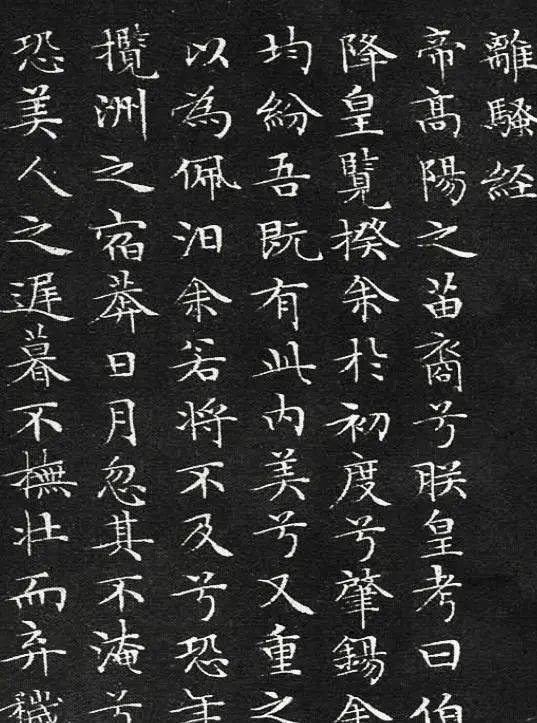 離騷経
帝髙陽之苗裔兮朕皇考曰伯
降皇覽揆余於初度兮肇錫余
均紛吾既有此内美兮又重之
以為佩汩余若将不及兮恐年
攬洲之宿莽日月忽其不淹兮
恐美人之遲暮不撫壯而弃穢